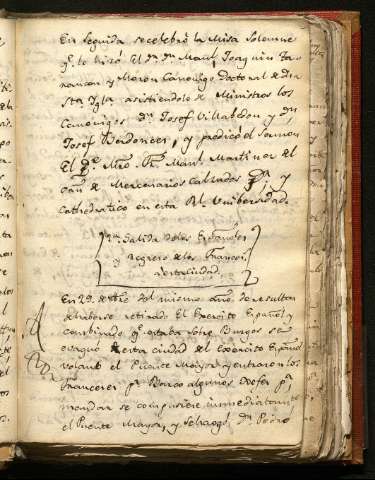 En seguida se celebró la Misa Solemne
q.e la hizó el Dr. Dn. Manl. Joaquin Ta-
rancon y Moron Canonigo Doctoral de dha
Sta Ygla asistiendole de Ministros los
Canonigos Dn. Josef Villaldon y Dn.
Josef Berdonces, y predicó el Sermon
El P.e Mro. Fr. Manl. Martinez del
de Mercenarios Calzados y
Cathedratico en esta Rl. Universidad.
Salida de los Españoles
y regreso de los Franceses
a esta Ciudad.
En 29 de del mismo año de resultas
de haberse retirado el Exercito Español y
combinado q.e estaba sobre Burgos se
evaquó esta Ciudad del Exercito Español
volaron el Puente Mayor, y entraron los
Franceses pr. Barco algunos Xefes pa.
mandar se compusiese inmediatamte.
el Puente Mayor, y Dn. Pedro